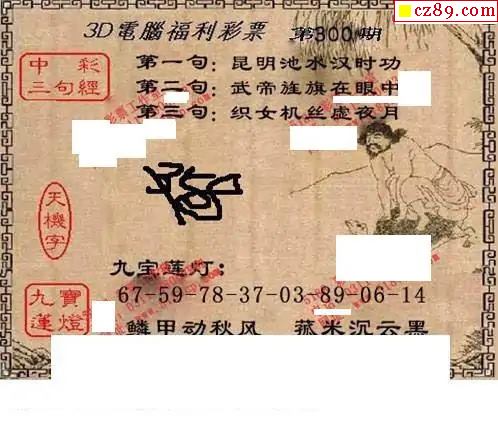 cz89.com
3D電腦福利彩票 第300期
中彩三句經
第一句：昆明池水汉时功
第二句：武帝旌旗在眼中
第三句：织女机丝虚夜月
天機字
九宝莲灯：
九寶蓮燈
67-59-78-37-03-89-06-14
鳞甲动秋风 菰米沉云黑